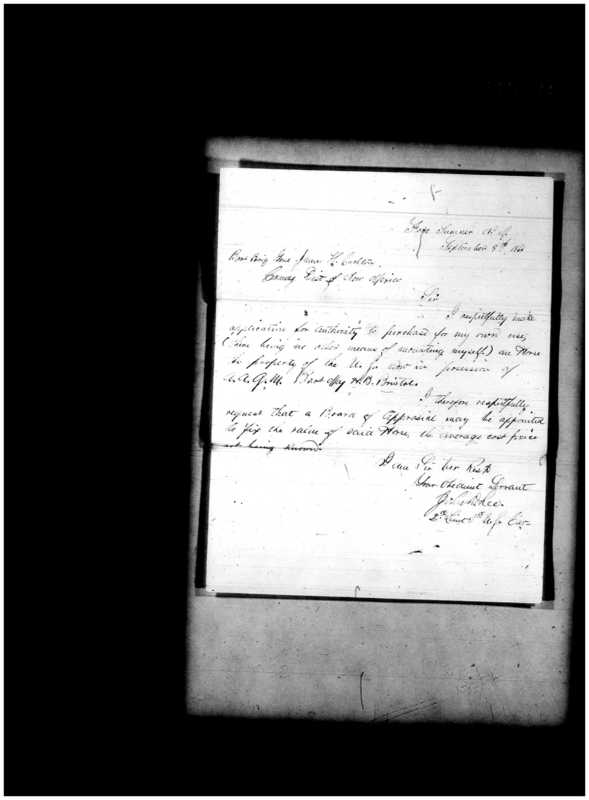 Fort Sumner N. M.
September 8th, 186
Bvt Brig Genl James H. Carleton
Comdg Dist of New Mexico
Sir
I respectfully make
application for authority to purchase for my own use,
(there being no other means of mounting myself) one Horse
the property of the U.S. now in possession of
A.A.Q.M. Bvt Maj H.B. Bristol.
I therefore respectfully
request that a Board of Appraisal may be appointed
to fix the value of said Horse, the average cost price
not being known.
I am Sir Very Resp
Your Obedient Servant
2d Lieut U.S. Cav